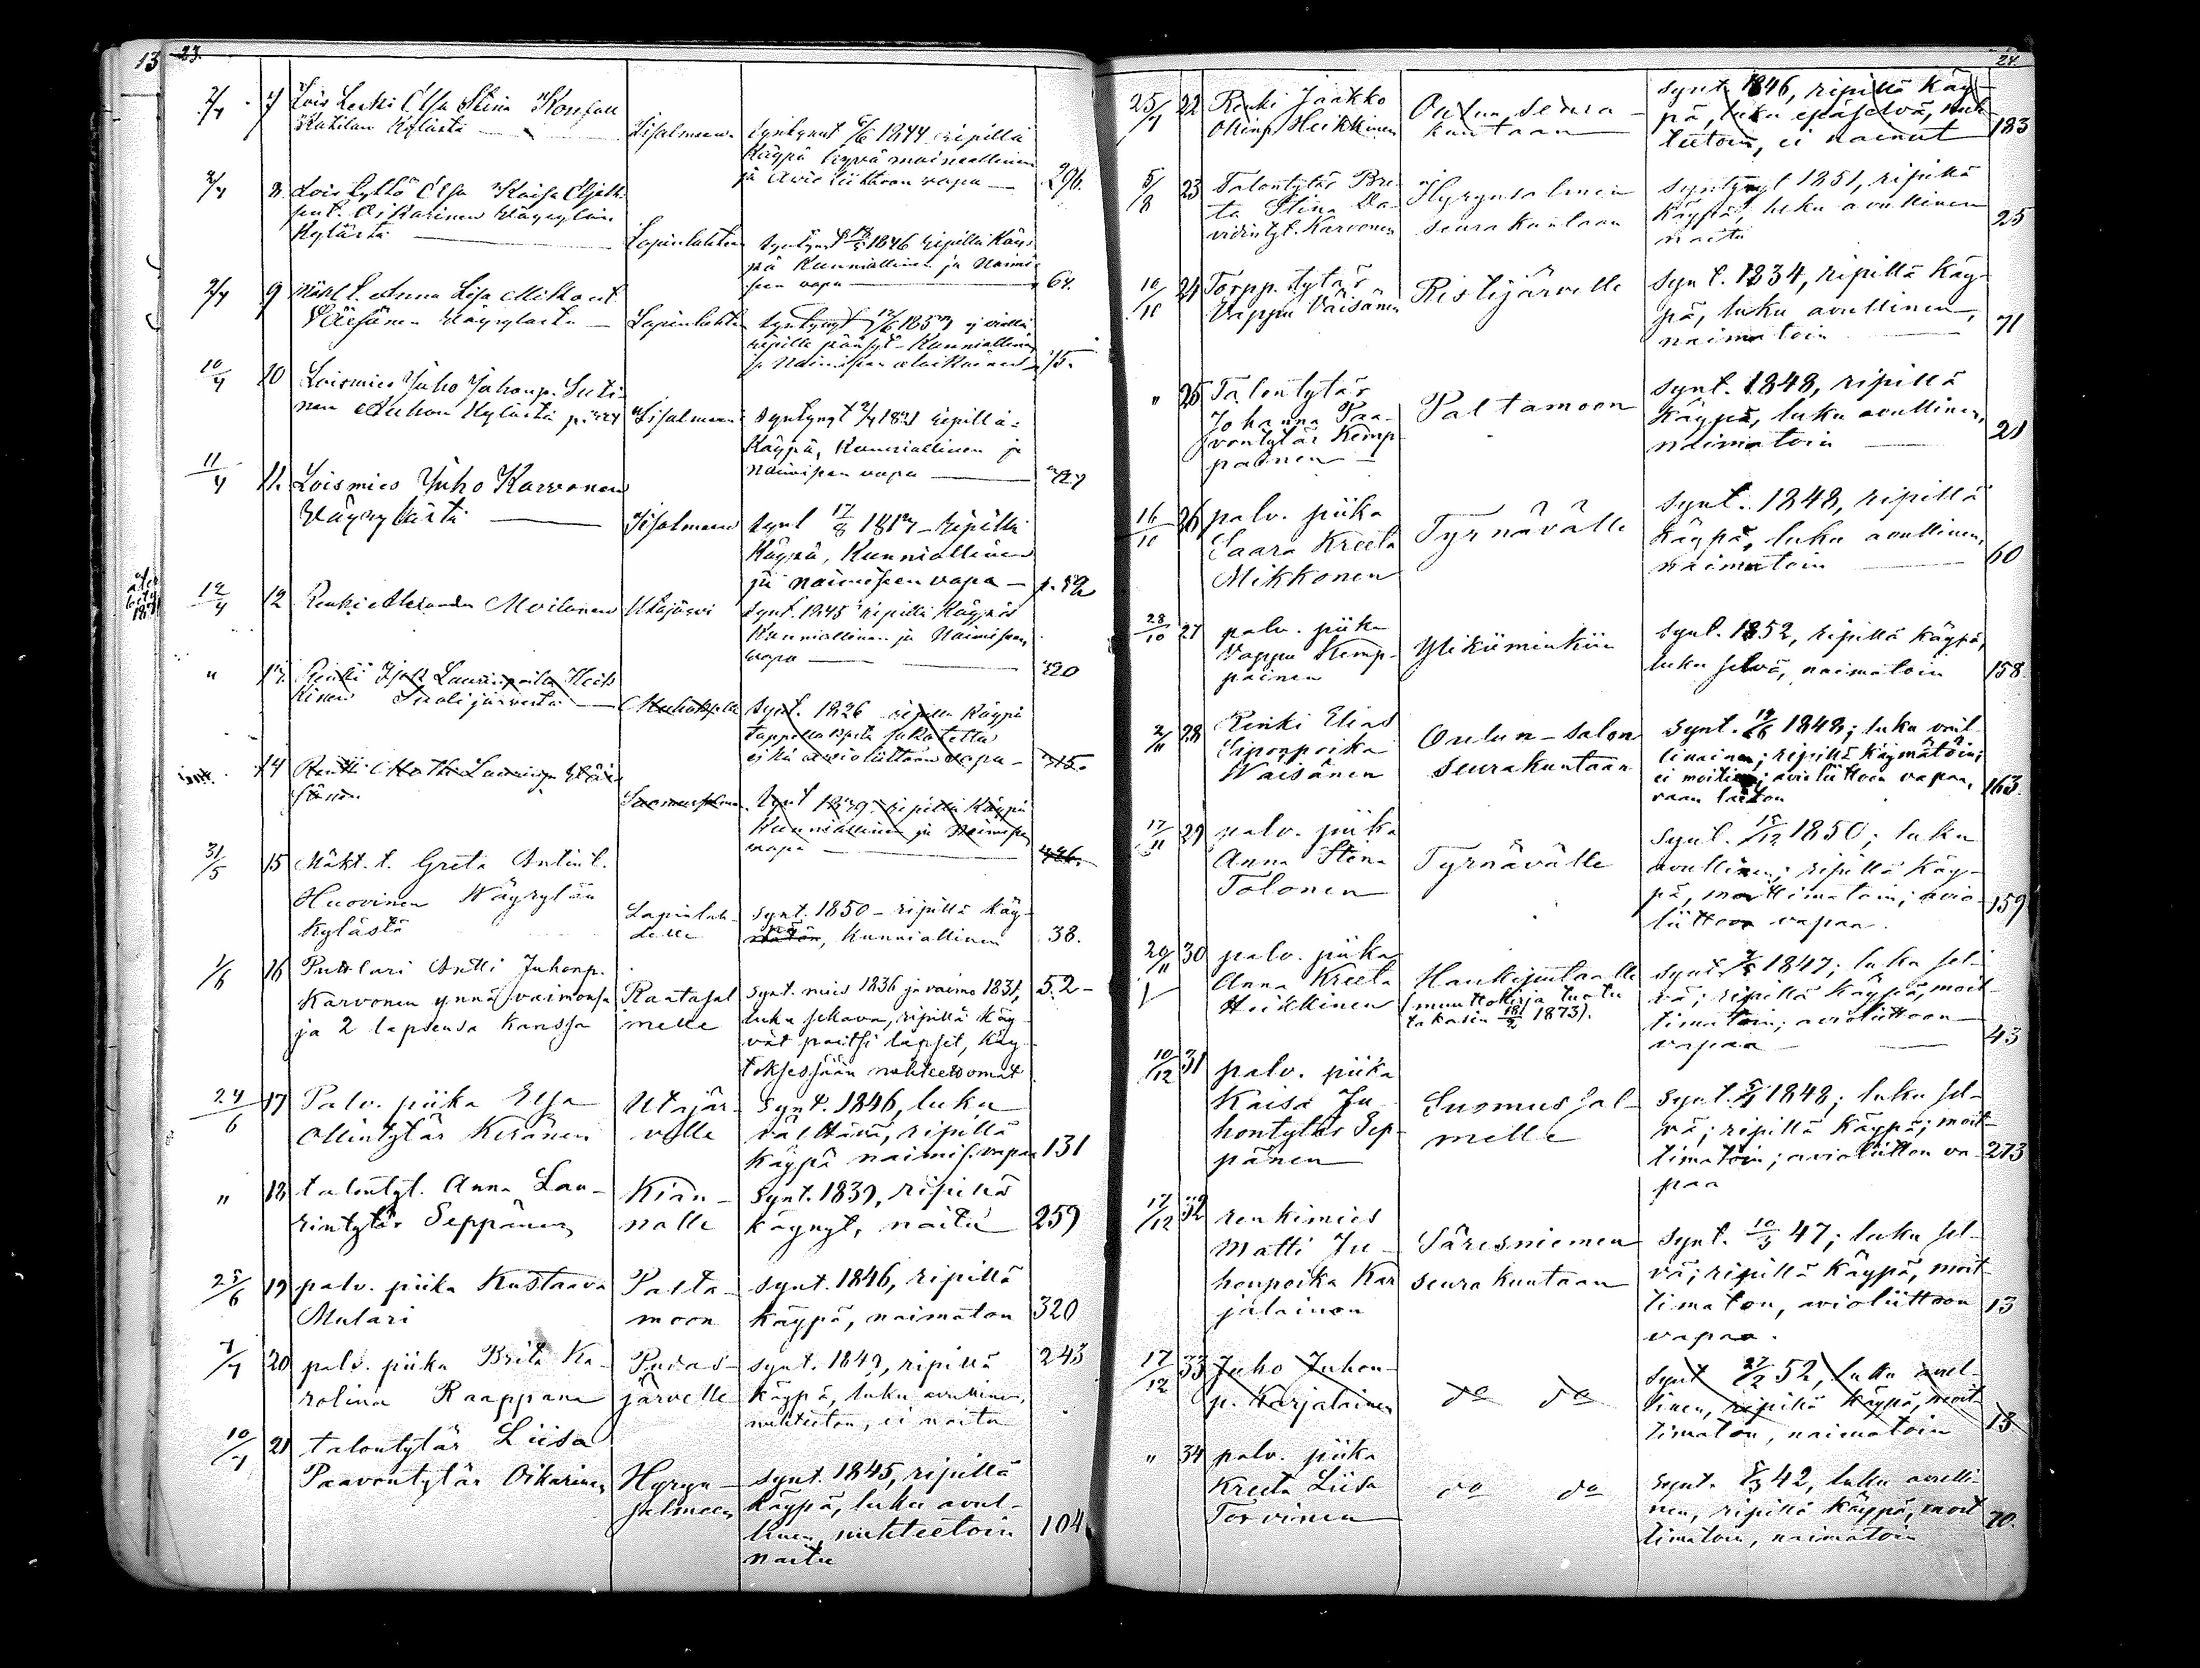 23.
13
2/4 7 Lois Leski Elsa Stina
Kylästä Iisalmeen syntynyt 6/6 1844 ripillä
käypä hyvämaineallinen
ja avioliittoon vapa — 296.
2/4 8. Lois tyttö Elsa Kaisa
Oikarinen Wäyrylän
kylästä Lapinlahteen syntynyt 1846 ripillä käy-
pä kunniallinen ja naimi-
seen vapa — 64.
2/4 9 Anna Lisa Mikont.
Väisänen Wäyrylästä — Lapinlahteen syntynyt ej vielä
ripillä päässyt — kunniallinen
ja naimiseen alaikäinen 75.
10/4 10 Loismies Juho Juhonp. Suti-
nen kylästä Iisalmeen syntynyt ripillä-
käypä, kunniallinen ja
naimiseen vapa —
11/4 11. Loismies Juho Karvonen
Wäyrylästä — Iisalmeen synt 17/8 ripillä
käypä, kunniallinen
ja naimiseen vapa —
12/4 12 Renki Alexander Moilanen Utajärvi synt. 1845 ripillä käypä
kunniallinen ja naimiseen
vapa — 320
" 13. Renki Isak Laurinpoika Heik
kinen synt. 1826 ripillä käypä
eikä avioliittoon vapa — 315.
14 Renki Matti Laurinp. Wäi
sänen Suomussalmen Synt 1839 ripillä käypä
kunniallinen ja naimiseen
vapa —
31/5 15 Mäkt. t. Greta Antint.
Huovinen Wäyrylän
kylästä Lapinlah-
delle synt. 1850 — ripillä käy-
pä, kunniallinen 38.
1/6 16 Puolari Antti Juhonp.
Karvonen ynnä vaimonsa
ja 2 lapsensa kanssa Rautasal
melle synt. mies 1836 ja vaimo 1831, 52-
luku sekava, ripillä käy-
vät paitsi lapset, käy-
töksessään nuhteettomat
24/6 17 Palv. piika Elsa
Ollintytär Keränen Utajär-
velle synt. 1846, luku
välttävä, ripillä
käypä naimis. vapaa 131
" 18 talontyt. Anna Lau-
rintytär Seppänen Kian-
nalle synt. 1839, ripillä
käynyt, naitu 259
25/6 19 palv. piika Kustaava
Mulari Palta-
moon synt. 1846, ripillä
käypä, naimaton 320
7/7 20 palv. piika Brita Ka-
rolina Raappana Pudas-
järvelle synt. 1849, ripillä 243
käypä, luku avullinen,
nuhteeton, ei naitu
10/7 21 talontytär Liisa
Paavontytär Oikarinen Hyryn-
salmeen synt. 1845, ripillä
käypä, luku avul-
linen, nuhteetoin 104
naitu
24.
25/7 22 Renki Jaakko
Ollinp. Heikkinen Oulun seura-
kuntaan synt. 1846, ripillä käy-
pä, luku epäselvä, nuh-
teetoin, ei nainut 183
5/8 23 Talontytär Bre-
ta Stina Da-
vidintyt. Karvonen Hyrynsalmen
seurakuntaan syntynyt 1851, ripillä
käypä, luku avullinen
naitu 25
10/10 24 Torpp. tytär
Vappu Väisänen Ristijärvelle synt. 1834, ripillä käy-
pä, luku avullinen,
naimatoin 71
" 25 Talontytär
Johanna Paa-
vontytär Kemp-
painen — Paltamoon synt. 1848, ripillä
käypä, luku avullinen,
naimatoin 21
16/10 26 palv. piika
Saara Kreeta
Mikkonen Tyrnävälle synt. 1848, ripillä
käypä, luku avullinen,
naimatoin 60
28/10 27 palv. piika
Vappu Kemp-
painen Ylikiiminkiin synt. 1852, ripillä käypä,
luku selvä, naimatoin 158
2/11 28 Renki Elias
Siponpoika
Waisänen Oulun-salon
seurakuntaan synt. 19/6 1848; luku vält-
tinainen; ripillä käymätöin;
ei moitteita; avioliittoin vapaa, 163.
vaan
17/11 29 palv. piika
Anna Stina
Tolonen Tyrnävälle synt. 15/12 1850; luku
avullinen; ripillä käy-
pä, moittimatoin; avio- 159
liittoon vapaa.
29/11 30 palv. piika
Anna Kreeta
Heikkinen Haukiputaalle
(muuttokirja tuotu
takasin 18/2 1873). synt. 1847; luku sel-
vä; ripillä käypä, moit-
timatoin; avioliittoon —
vapaa — 43
10/12 31 palv. piika
Kaisa Ju-
hontytär Sep-
pänen Suomussal-
melle synt. 1848; luku sel-
vä; ripillä käypä; moit-
timatoin; avioliitton va- 273
paa
17/12 32 renkimies
Matti Ju-
honpoika Kar
jalainen Säresniemen
seurakuntaan synt. 10/3 47; luku sel-
vä; ripillä käypä, moit-
timaton, avioliittoon 13
vapaa.
17/12 33 Juho Juhon-
p. Karjalainen do do synt 27/2 52, luku avul-
linen, ripillä käypä, moit-
timaton, naimatoin 13
" 34 palv. piika
Kreeta Liisa
Torvinen do do synt. 42, luku avulli-
nen, ripillä käypä, moit
timatoin, naimatoin 70.